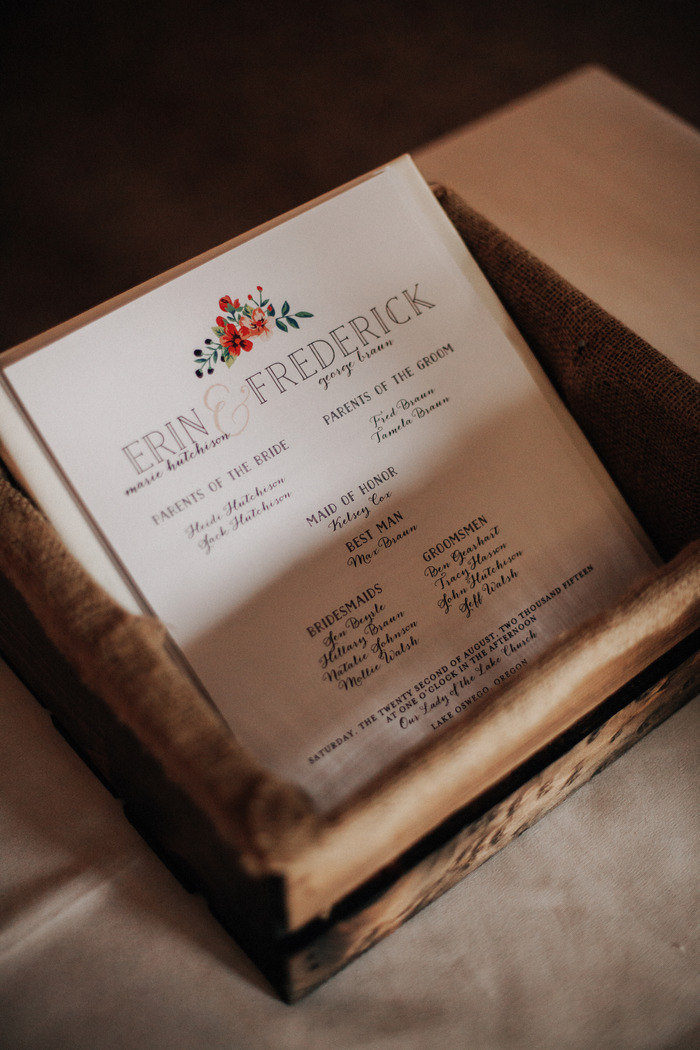 ERIN & FREDERICK
marie hutchison
george braun
PARENTS OF THE BRIDE
Heidi Hutchison
Jack Hutchison
PARENTS OF THE GROOM
Fred Braun
Tamela Braun
MAID OF HONOR
Kelsey Cox
BEST MAN
Max Braun
BRIDESMAIDS
Jen Beyrle
Hillary Braun
Natalie Johnson
Mollie Walsh
GROOMSMEN
Ben Gearhart
Tracy Hasson
John Hutchison
Jeff Walsh
SATURDAY, THE TWENTY SECOND OF AUGUST, TWO THOUSAND FIFTEEN
AT ONE O'CLOCK IN THE AFTERNOON
Our Lady of the Lake Church
LAKE OSWEGO, OREGON